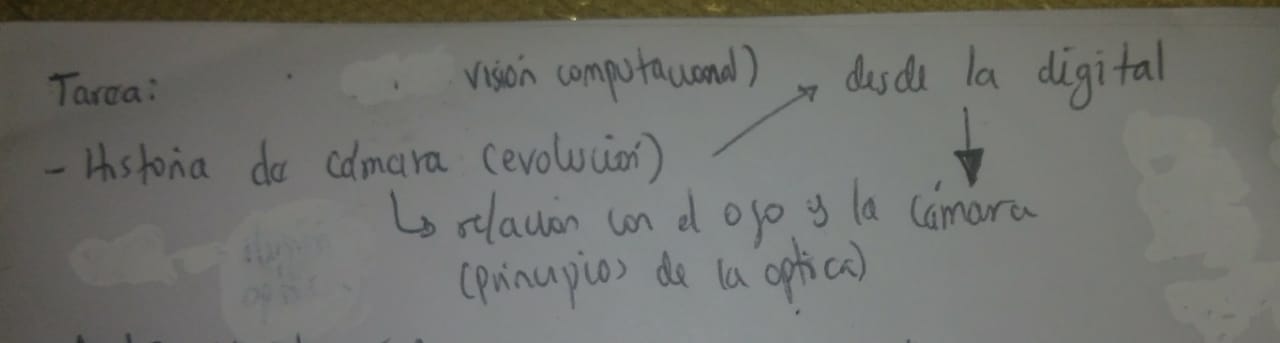 Tarea: visión computacional)
- Historia da cámara (evolución) → desde la digital
↳ relación con el ojo y la cámara
(principios de la optica)